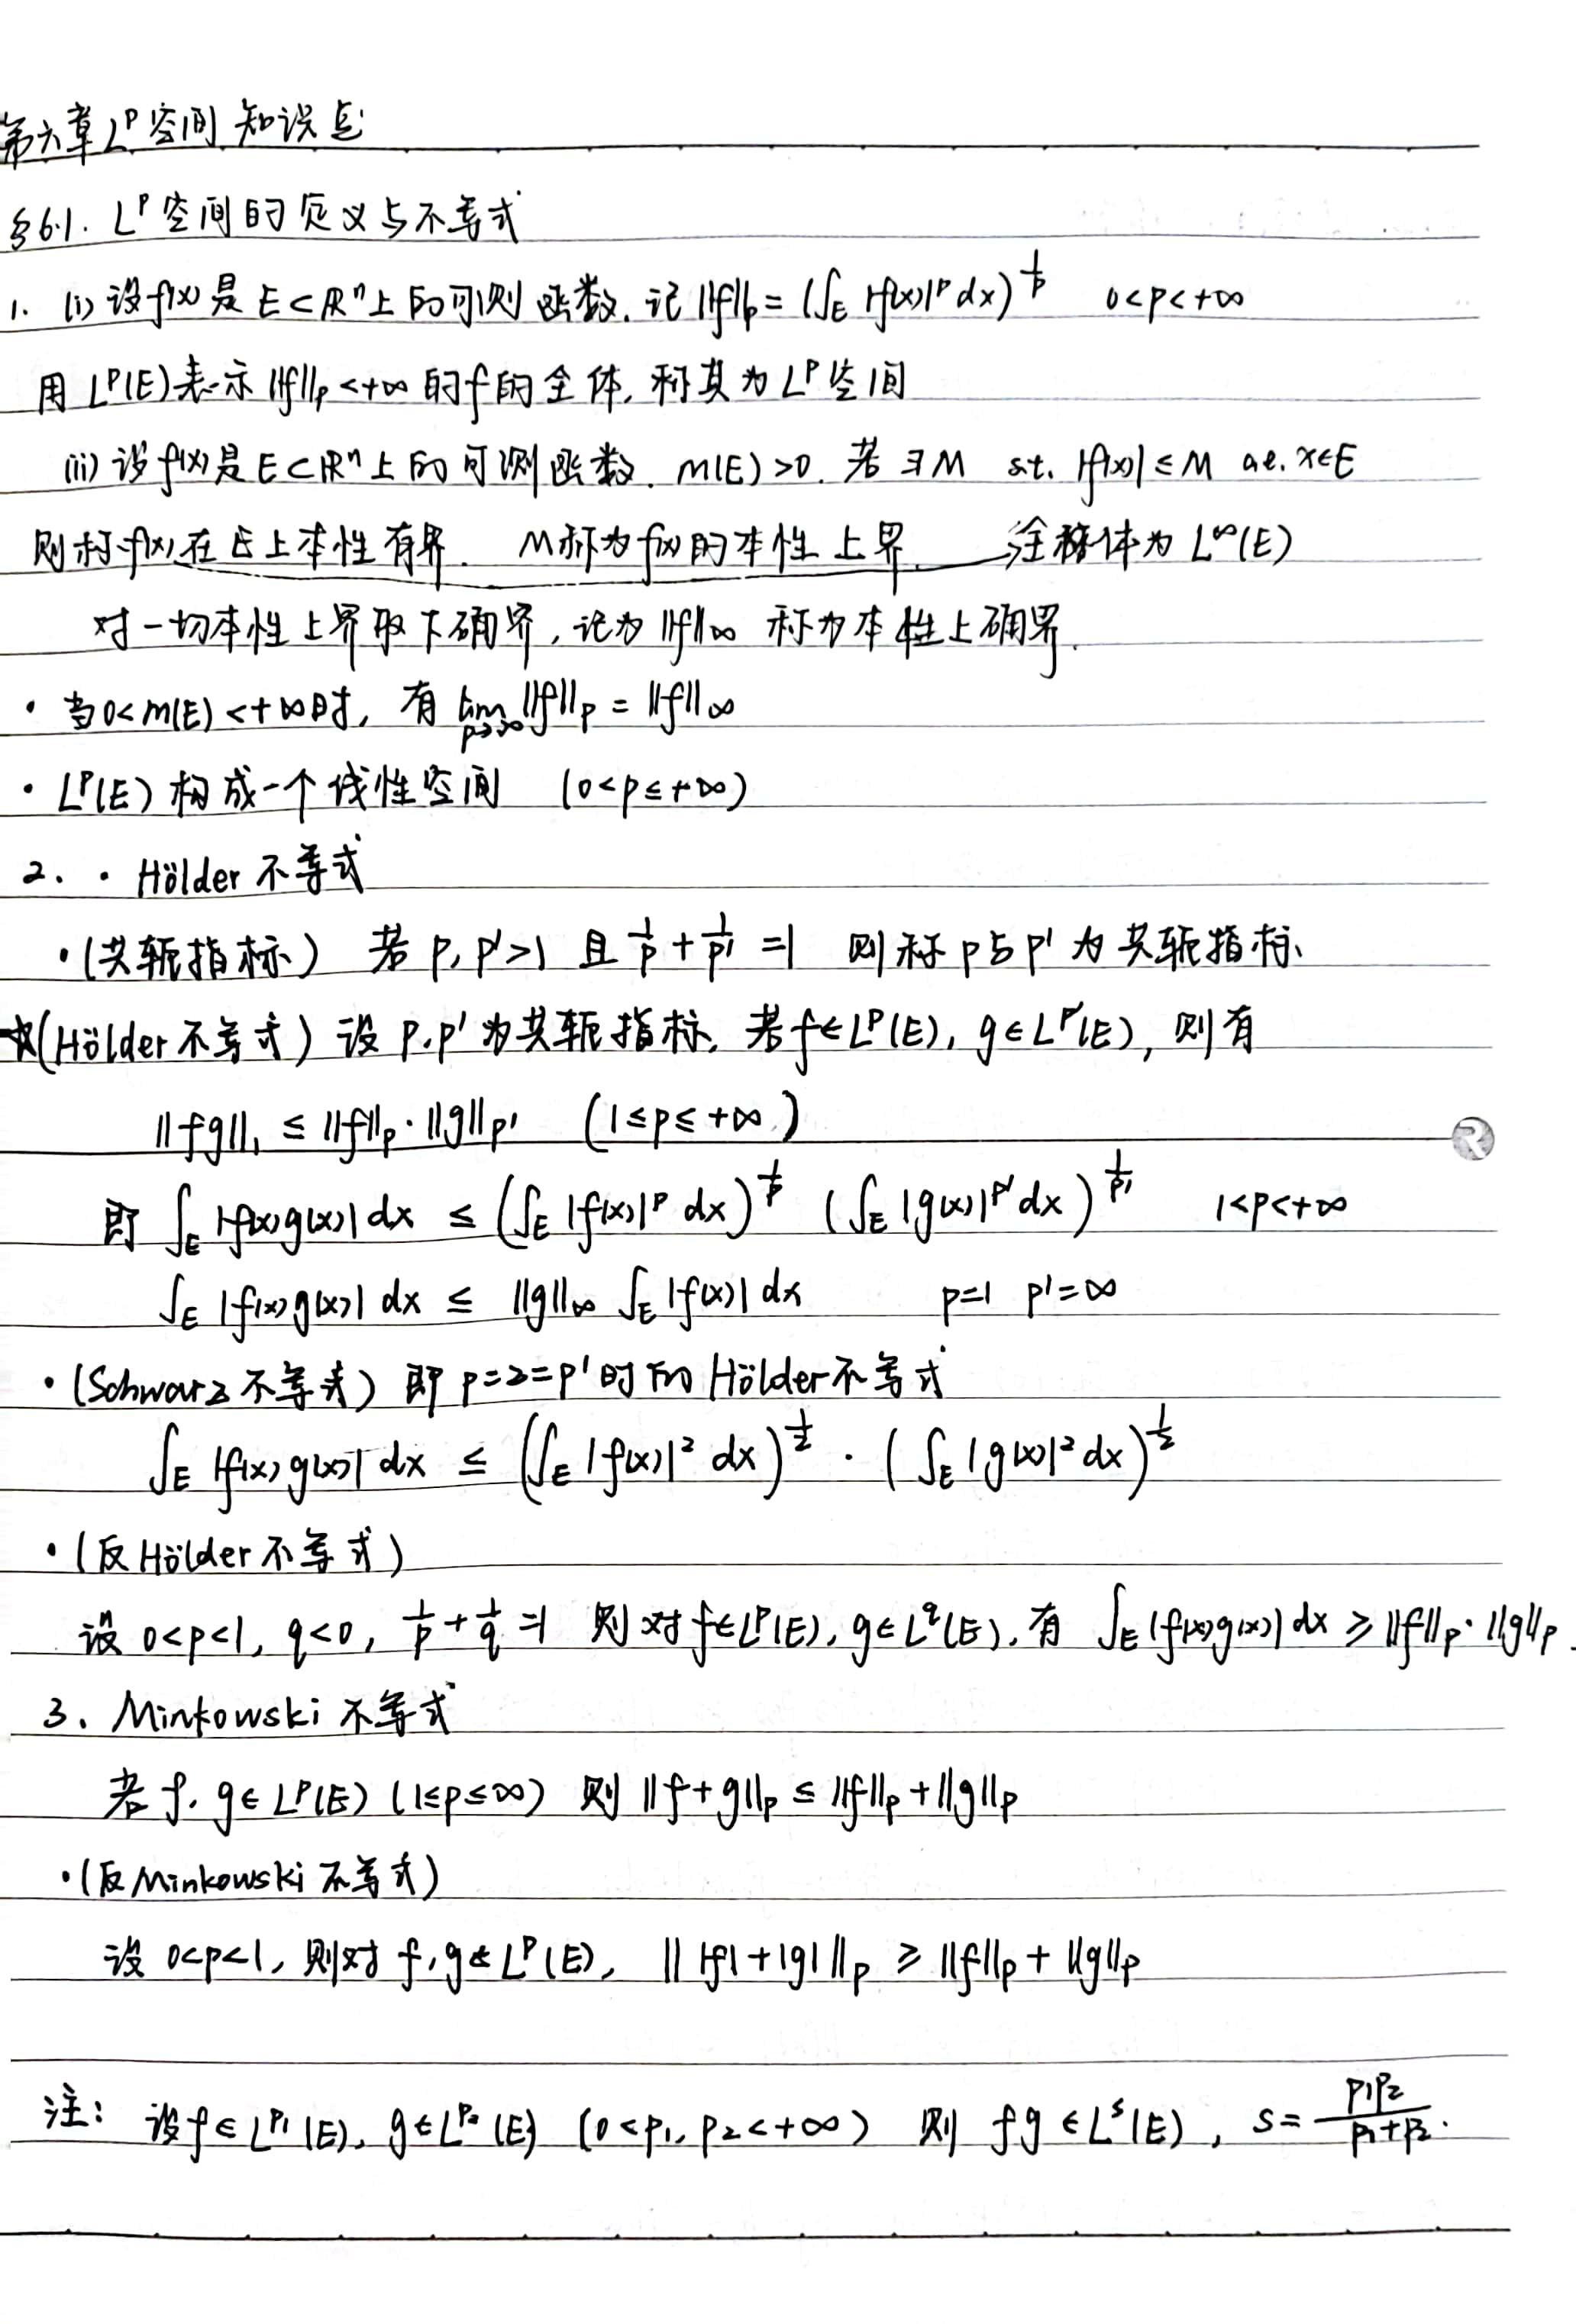 第六章 L^p 空间 知识点
§6.1. L^p 空间的定义与不等式
1. (i) 设 f(x) 是 E⊂R^n 上的可测函数. 记 ||f||_p = (∫_E |f(x)|^p dx)^{1/p} 0<p<+∞
用 L^p(E) 表示 ||f||_p <+∞ 的 f 的全体, 称其为 L^p 空间
(ii) 设 f(x) 是 E⊂R^n 上的可测函数. m(E)>0. 若 ∃M s.t. |f(x)| ≤ M a.e. x∈E
则称 f(x) 在 E 上本性有界. M 称为 f(x) 的本性上界. 全体为 L^∞(E)
对一切本性上界取下确界, 记为 ||f||_∞ 称为本性上确界.
· 当 0<m(E)<+∞ 时, 有 lim_{p→∞} ||f||_p = ||f||_∞
· L^p(E) 构成一个线性空间 (0<p≤+∞)
2. · Hölder 不等式
· (共轭指标) 若 p, p'>1 且 1/p + 1/p' =1 则称 p 与 p' 为共轭指标.
(Hölder 不等式) 设 p, p' 为共轭指标, 若 f∈L^p(E), g∈L^{p'}(E), 则有
||fg||_1 ≤ ||f||_p · ||g||_{p'} (1≤p≤+∞)
即 ∫_E |f(x)g(x)| dx ≤ (∫_E |f(x)|^p dx)^{1/p} (∫_E |g(x)|^{p'} dx)^{1/p'} 1<p<+∞
∫_E |f(x)g(x)| dx ≤ ||g||_∞ ∫_E |f(x)| dx p=1 p'=∞
· (Schwarz 不等式) 即 p=2=p' 时的 Hölder 不等式
∫_E |f(x)g(x)| dx ≤ (∫_E |f(x)|^2 dx)^{1/2} · (∫_E |g(x)|^2 dx)^{1/2}
· (反 Hölder 不等式)
设 0<p<1, q<0, 1/p + 1/q =1 则对 f∈L^p(E), g∈L^q(E), 有 ∫_E |f(x)g(x)| dx ≥ ||f||_p · ||g||_p
3. Minkowski 不等式
若 f, g∈L^p(E) (1≤p≤∞) 则 ||f+g||_p ≤ ||f||_p + ||g||_p
· (反 Minkowski 不等式)
设 0<p<1, 则对 f, g∈L^p(E), || |f|+|g| ||_p ≥ ||f||_p + ||g||_p
注: 设 f∈L^{p_1}(E), g∈L^{p_2}(E) (0<p_1, p_2<+∞) 则 fg∈L^s(E), s = p_1p_2/(p_1+p_2).